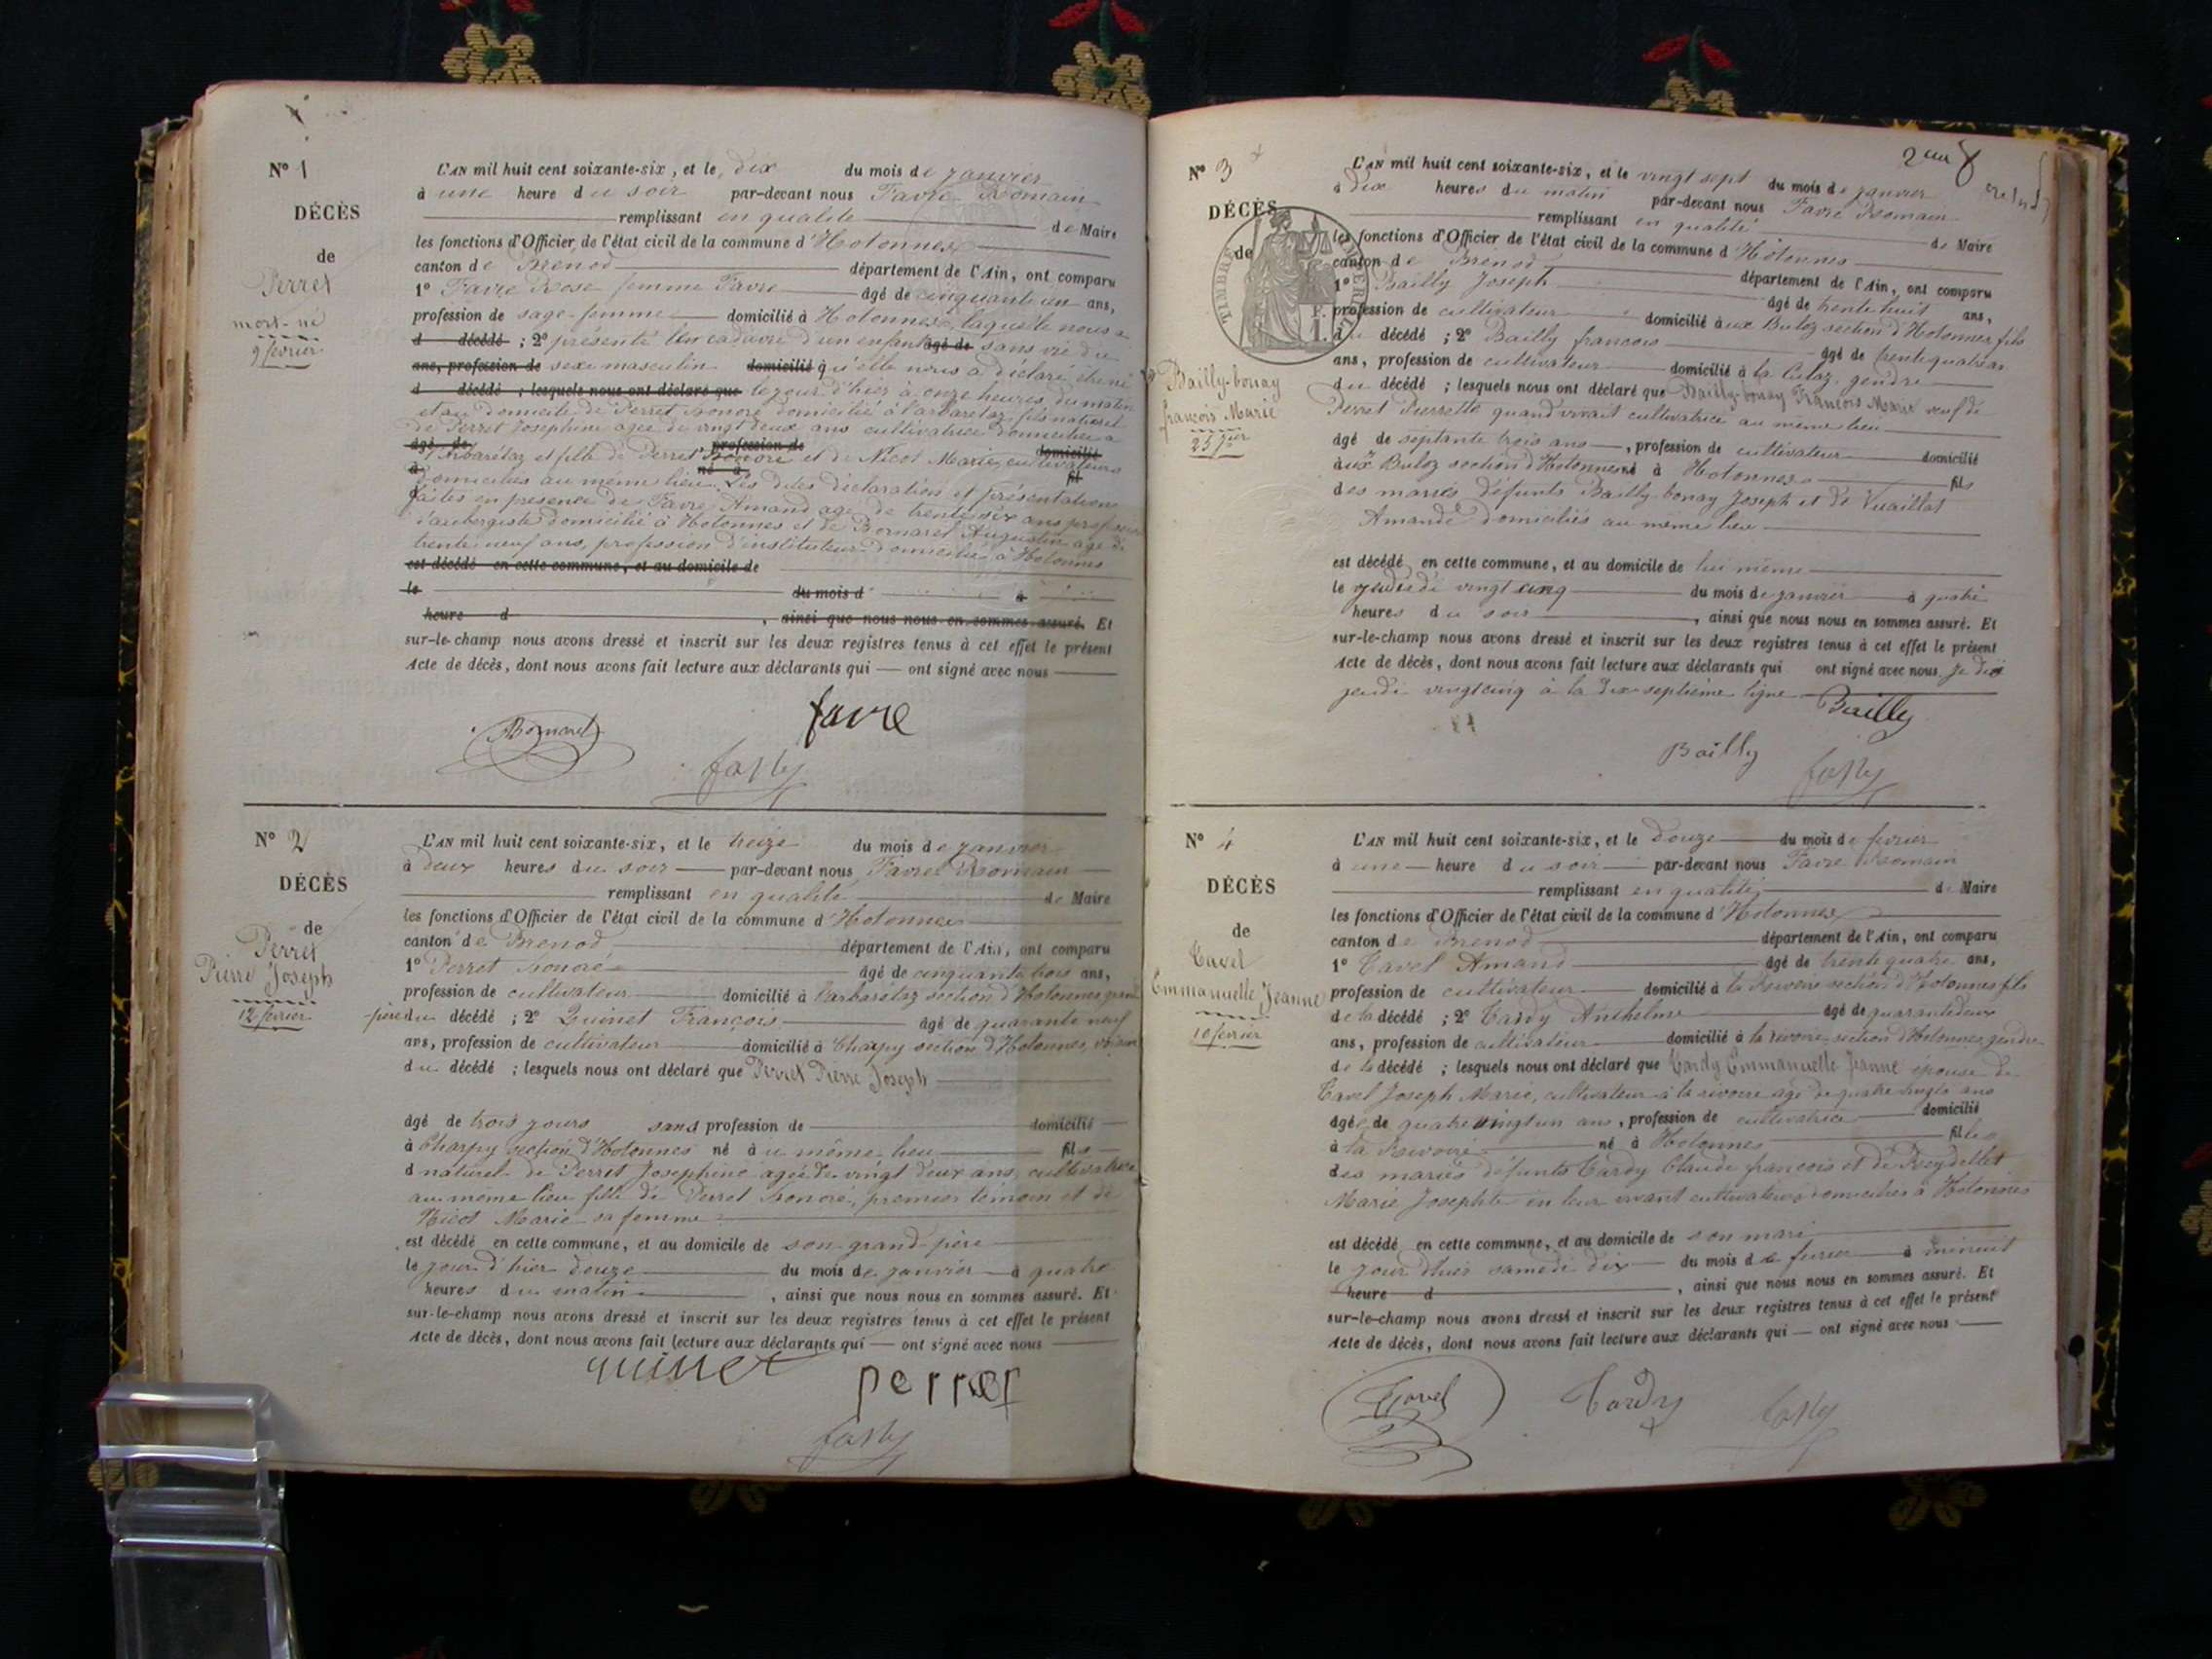 Nº 1
DÉCÈS
de
Perret
mort-né
9 février
L'AN mil huit cent soixante-six, et le dix du mois de janvier
à une heure du soir par-devant nous Favre Romain
remplissant en qualité de Maire
les fonctions d'Officier de l'état civil de la commune d'Hotonnes
canton de Brenod département de l'Ain, ont comparu
1º Favre Rose femme Favre âgé de cinquante un ans,
profession de sage-femme domicilié à Hotonnes, laquelle nous a
d décédé ; 2º présenté un cadavre d'un enfant âgé de sans vie du
ans, profession de sexe masculin domicilié à qu'elle nous a déclaré être né
d décédé ; lesquels nous ont déclaré que le jour d'hier à onze heures du matin
et au domicile de Perret honoré domicilié à l'arbarétaz, fils naturel
de Perret Josephine agée de vingt deux ans cultivatrice domiciliée a
âgé de profession de domicilié
l'Arbarétaz et fille de Perret honoré et de Nicot Marie, cultivateurs
à né à fil
domiciliés au même lieu. Les dites déclaration et présentation
faites en présence de Favre Amand agé de trente six ans profession
d'aubergiste domicilié à Hotonnes et de Bornarel Augustin agé de
trente neuf ans, profession d'instituteur domiciliés à Hotonnes
est décédé en cette commune, et au domicile de
le du mois d à
heure d , ainsi que nous nous en sommes assuré. Et
sur-le-champ nous avons dressé et inscrit sur les deux registres tenus à cet effet le présent
Acte de décès, dont nous avons fait lecture aux déclarants qui — ont signé avec nous
Bornarel
favre
Nº 2
DÉCÈS
de
Perret
Pierre Joseph
12 février
L'AN mil huit cent soixante-six, et le treize du mois de janvier
à deux heures du soir par-devant nous Favre Romain
remplissant en qualité de Maire
les fonctions d'Officier de l'état civil de la commune d'Hotonnes
canton de Brenod département de l'Ain, ont comparu
1º Perret honoré âgé de cinquante trois ans,
profession de cultivateur domicilié à l'arbarétaz section d'Hotonnes grand
père du décédé ; 2º Quinet François âgé de quarante neuf
ans, profession de cultivateur domicilié à Charpy section d'Hotonnes, voisin
du décédé ; lesquels nous ont déclaré que Perret Pierre Joseph
âgé de trois jours sans profession de domicilié
à Charpy section d'Hotonnes né à u même lieu fils
d naturel de Perret Josephine agée de vingt deux ans, cultivatrice
au même lieu fille de Perret honoré, premier témoin et de
Nicot Marie sa femme
est décédé en cette commune, et au domicile de son grand-père
le jour d'hier douze du mois de janvier à quatre
heures du matin , ainsi que nous nous en sommes assuré. Et
sur-le-champ nous avons dressé et inscrit sur les deux registres tenus à cet effet le présent
Acte de décès, dont nous avons fait lecture aux déclarants qui — ont signé avec nous
quinet
perret
Nº 3
DÉCÈS
de
TIMBRE IMPERIAL
1 F.
Bailly-bonay
françois Marie
25 Jer
2me
L'AN mil huit cent soixante-six, et le vingt sept du mois de janvier
à dix heures du matin par-devant nous Favre Romain
remplissant en qualité de Maire
les fonctions d'Officier de l'état civil de la commune d'Hotonnes
canton de Brenod département de l'Ain, ont comparu
1º Bailly Joseph âgé de trente huit ans,
profession de cultivateur domicilié aux Buloz section d'Hotonnes fils
du décédé ; 2º Bailly françois âgé de trente quatre
ans, profession de cultivateur domicilié à la Culaz, gendre
du décédé ; lesquels nous ont déclaré que Bailly-bonay François Marie veuf de
Perret Pierrette quand vivait cultivatrice au même lieu
âgé de septante trois ans, profession de cultivateur domicilié
aux Buloz section d'Hotonnes né à Hotonnes fils
des mariés défunts Bailly-bonay Joseph et de Vuaillat
Amande domiciliés au même lieu
est décédé en cette commune, et au domicile de lui même
le jeudi vingt cinq du mois de janvier à quatre
heures du soir , ainsi que nous nous en sommes assuré. Et
sur-le-champ nous avons dressé et inscrit sur les deux registres tenus à cet effet le présent
Acte de décès, dont nous avons fait lecture aux déclarants qui ont signé avec nous. Je dis
jeudi vingt cinq à la dix septième ligne
Bailly
Bailly
Nº 4
DÉCÈS
de
Tavel
Emmanuelle Jeanne
10 février
L'AN mil huit cent soixante-six, et le douze du mois de fevrier
à une heure du soir par-devant nous Favre Romain
remplissant en qualité de Maire
les fonctions d'Officier de l'état civil de la commune d'Hotonnes
canton de Brenod département de l'Ain, ont comparu
1º Tavel Amand âgé de trente quatre ans,
profession de cultivateur domicilié à la Rivoire section d'Hotonnes fils
de la décédé ; 2º Tardy Anthelme âgé de quarante deux
ans, profession de cultivateur domicilié à la rivoire section d'Hotonnes, gendre
de la décédé ; lesquels nous ont déclaré que Tardy Emmanuelle Jeanne épouse de
Tavel Joseph Marie, cultivateur à la rivoire agé de quatre vingts ans
âgée de quatre vingt un ans, profession de cultivatrice domicilié
à la Rivoire né à Hotonnes fille
des mariés défunts Tardy Claude françois et de Reydellet
Marie Josephte en leur vivant cultivateurs domiciliés à Hotonnes
est décédé en cette commune, et au domicile de son mari
le jour d'hier samedi dix du mois de fevrier à minuit
heure d , ainsi que nous nous en sommes assuré. Et
sur-le-champ nous avons dressé et inscrit sur les deux registres tenus à cet effet le présent
Acte de décès, dont nous avons fait lecture aux déclarants qui — ont signé avec nous
Tavel
Tardy